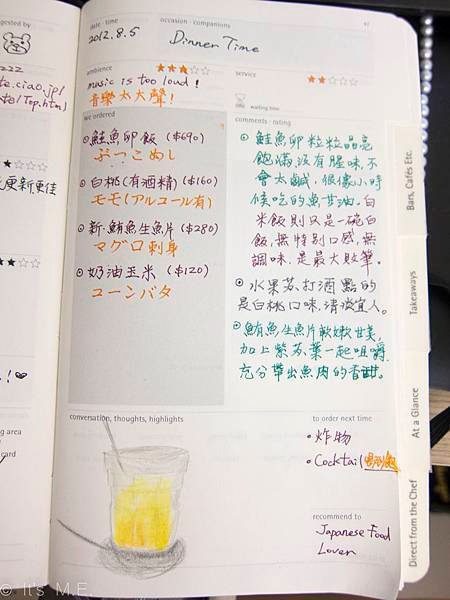 gested by
zzz
te.ciao.jp/
te/Top.html
更新更佳
ng area
card
date · time
occasion · companions
2012.8.5
Dinner Time
ambience
service
music is too loud!
音樂太大聲!
waiting time
we ordered
comments · rating
鮭魚卵飯 ($690)
ぶっこめし
白桃(有酒精) ($160)
モモ(アルコール有)
新.鮪魚生魚片 ($280)
マグロ刺身
奶油玉米 ($120)
コーンバタ
鮭魚卵粒粒晶亮
飽滿沒有腥味,不
會太鹹,很像小時
候吃的魚甘油。白
米飯則只是一碗白
飯,無特别口感,無
調味,是最大敗筆。
水果蘇打酒點的
是白桃口味,清淡宜人。
鮪魚生魚片軟嫩甘美,
加上紫蘇葉一起咀嚼
充分帶出魚肉的香甜。
conversation, thoughts, highlights
to order next time
炸物
Cocktail
recommend to
Japanese Food
Lover
Bars, Cafés Etc.
Takeaways
At a Glance
Direct from the Chef
© It's M.E